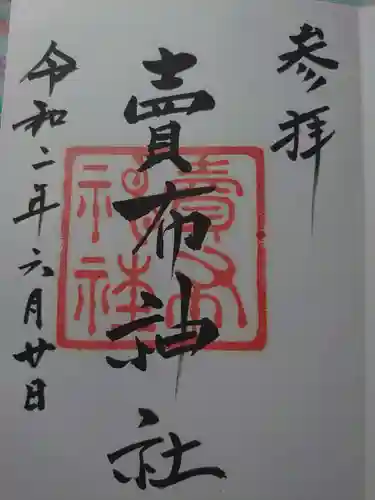 参拝
賣布神社
賣布神社
令和二年六月廿日